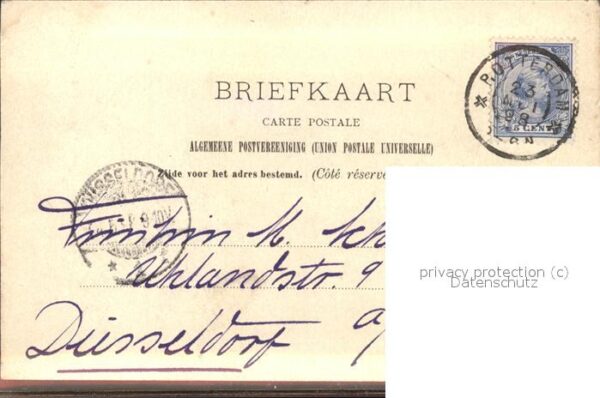 BRIEFKAART
CARTE POSTALE
ALGEMEENE POSTVEREENIGING (UNION POSTALE UNIVERSELLE)
Zijde voor het adres bestemd. (Côté réservé
ROTTERDAM
23
98
5 CENT
DÜSSELDORF
M.
Uhlandstr. 9
Düsseldorf a/
privacy protection (c)
Datenschutz